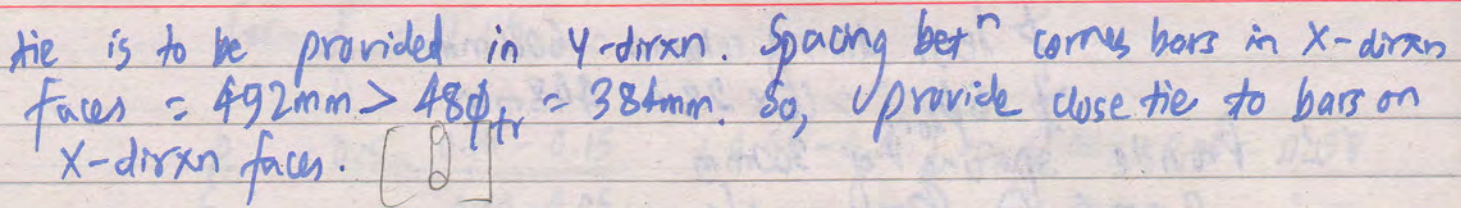 tie is to be provided in Y-dirxn. Spacing betⁿ corner bars in X-dirxn
faces = 492mm > 48ϕtr = 384mm. So, provide close tie to bars on
X-dirxn faces.